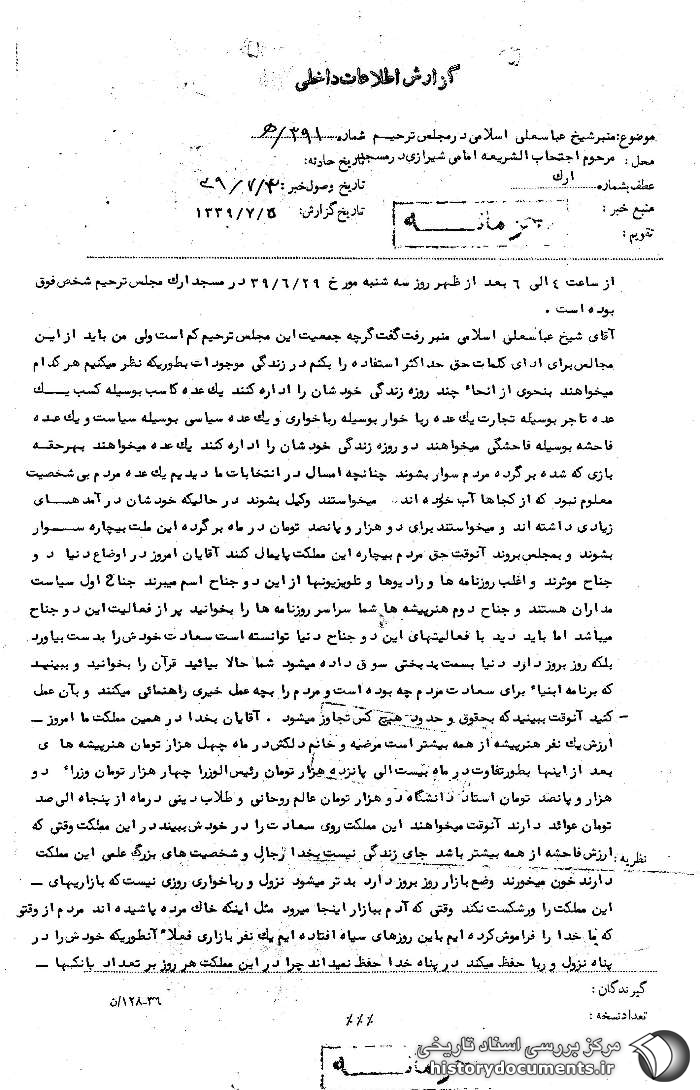 گزارش اطلاعات داخلی
موضوع: منبر شیخ عباسعلی اسلامی در مجلس ترحیم شماره ۳۹۱/ه
محل: مرحوم اجتحاب الشریعه امامی شیرازی در مسجد تاریخ حادثه:
عطف بشماره ارك تاریخ وصول خبر: ۳۹/۷/۴
منبع خبر: تاریخ گزارش: ۱۳۳۹/۷/۵
تقویم:
محرمانه
از ساعت ۴ الی ۶ بعد از ظهر روز سه شنبه مورخ ۳۹/۶/۲۹ در مسجد ارك مجلس ترحیم شخص فوق
بوده است .
آقای شیخ عباسعلی اسلامی منبر رفت گفت گرچه جمعیت این مجلس ترحیم کم است ولی من باید از این
مجالس برای ادای کلمات حق حداکثر استفاده را بکنم در زندگی موجودات بطوریکه نظر میکنیم هر کدام
میخواهند بنحوی از انحاء چند روزه زندگی خودشان را اداره کنند یك عده کاسب بوسیله کسب یك
عده تاجر بوسیله تجارت یك عده ربا خوار بوسیله رباخواری و یك عده سیاسی بوسیله سیاست و یك عده
فاحشه بوسیله فاحشگی میخواهند دو روزه زندگی خودشان را اداره کنند یك عده میخواهند بهر حقه
بازی که شده بر گرده مردم سوار بشوند چنانچه امسال در انتخابات ما دیدیم یك عده مردم بی شخصیت
معلوم نبود که از کجاها آب خورده اند میخواستند وکیل بشوند در حالیکه خودشان درآمدهای
زیادی داشته اند و میخواستند برای دو هزار و پانصد تومان در ماه بر گرده این ملت بیچاره سوار
بشوند و بمجلس بروند آنوقت حق مردم بیچاره این مملکت پایمال کنند آقایان امروز در اوضاع دنیا دو
جناح موثرند و اغلب روزنامه ها و رادیوها و تلویزیونها از این دو جناح اسم میبرند جناح اول سیاست
مداران هستند و جناح دوم هنرپیشه ها شما سراسر روزنامه ها را بخوانید پر از فعالیت این دو جناح
میباشد اما باید دید با فعالیتهای این دو جناح دنیا توانسته است سعادت خودش را بدست بیاورد
بلکه روز بروز دارد دنیا بسمت بدبختی سوق داده میشود شما حالا بیائید قرآن را بخوانید و ببینید
که برنامه انبیاء برای سعادت مردم چه بوده است و مردم را بچه عمل خیری راهنمائی میکنند و بآن عمل
کنید آنوقت ببینید که بحقوق و حدود هیچ کس تجاوز میشود . آقایان بخدا در همین مملکت ما امروز
ارزش یك نفر هنرپیشه از همه بیشتر است مرضیه و خانم دلکش در ماه چهل هزار تومان هنرپیشه های
بعد از اینها بطور تفاوت در ماه بیست الی پانزده هزار تومان رئیس الوزرا چهار هزار تومان وزراء دو
هزار و پانصد تومان استاد دانشگاه دو هزار تومان عالم روحانی و طلاب دینی در ماه از پنجاه الی صد
تومان عوائد دارند آنوقت میخواهند این مملکت روی سعادت را در خودش ببیند در این مملکت وقتی که
نظریه: ارزش فاحشه از همه بیشتر باشد جای زندگی نیست بخدا رجال و شخصیت های بزرگ علمی این مملکت
دارند خون میخورند وضع بازار روز بروز دارد بدتر میشود نزول و رباخواری روزی نیست که بازاریهای
این مملکت را ورشکست نکند وقتی که آدم ببازار اینجا میرود مثل اینکه خاك مرده پاشیده اند مردم از وقتی
که ما خدا را فراموش کرده ایم باین روزهای سیاه افتاده ایم یك نفر بازاری فعلاً آنطوریکه خودش را در
پناه نزول و ربا حفظ میکند در پناه خدا حفظ نمیداند چرا در این مملکت هر روز بر تعداد بانکها
گیرندگان:
۱۲۸-۳۶/ن
تعداد نسخه:
٪٪٪
مرکز بررسی اسناد تاریخی
historydocuments.ir